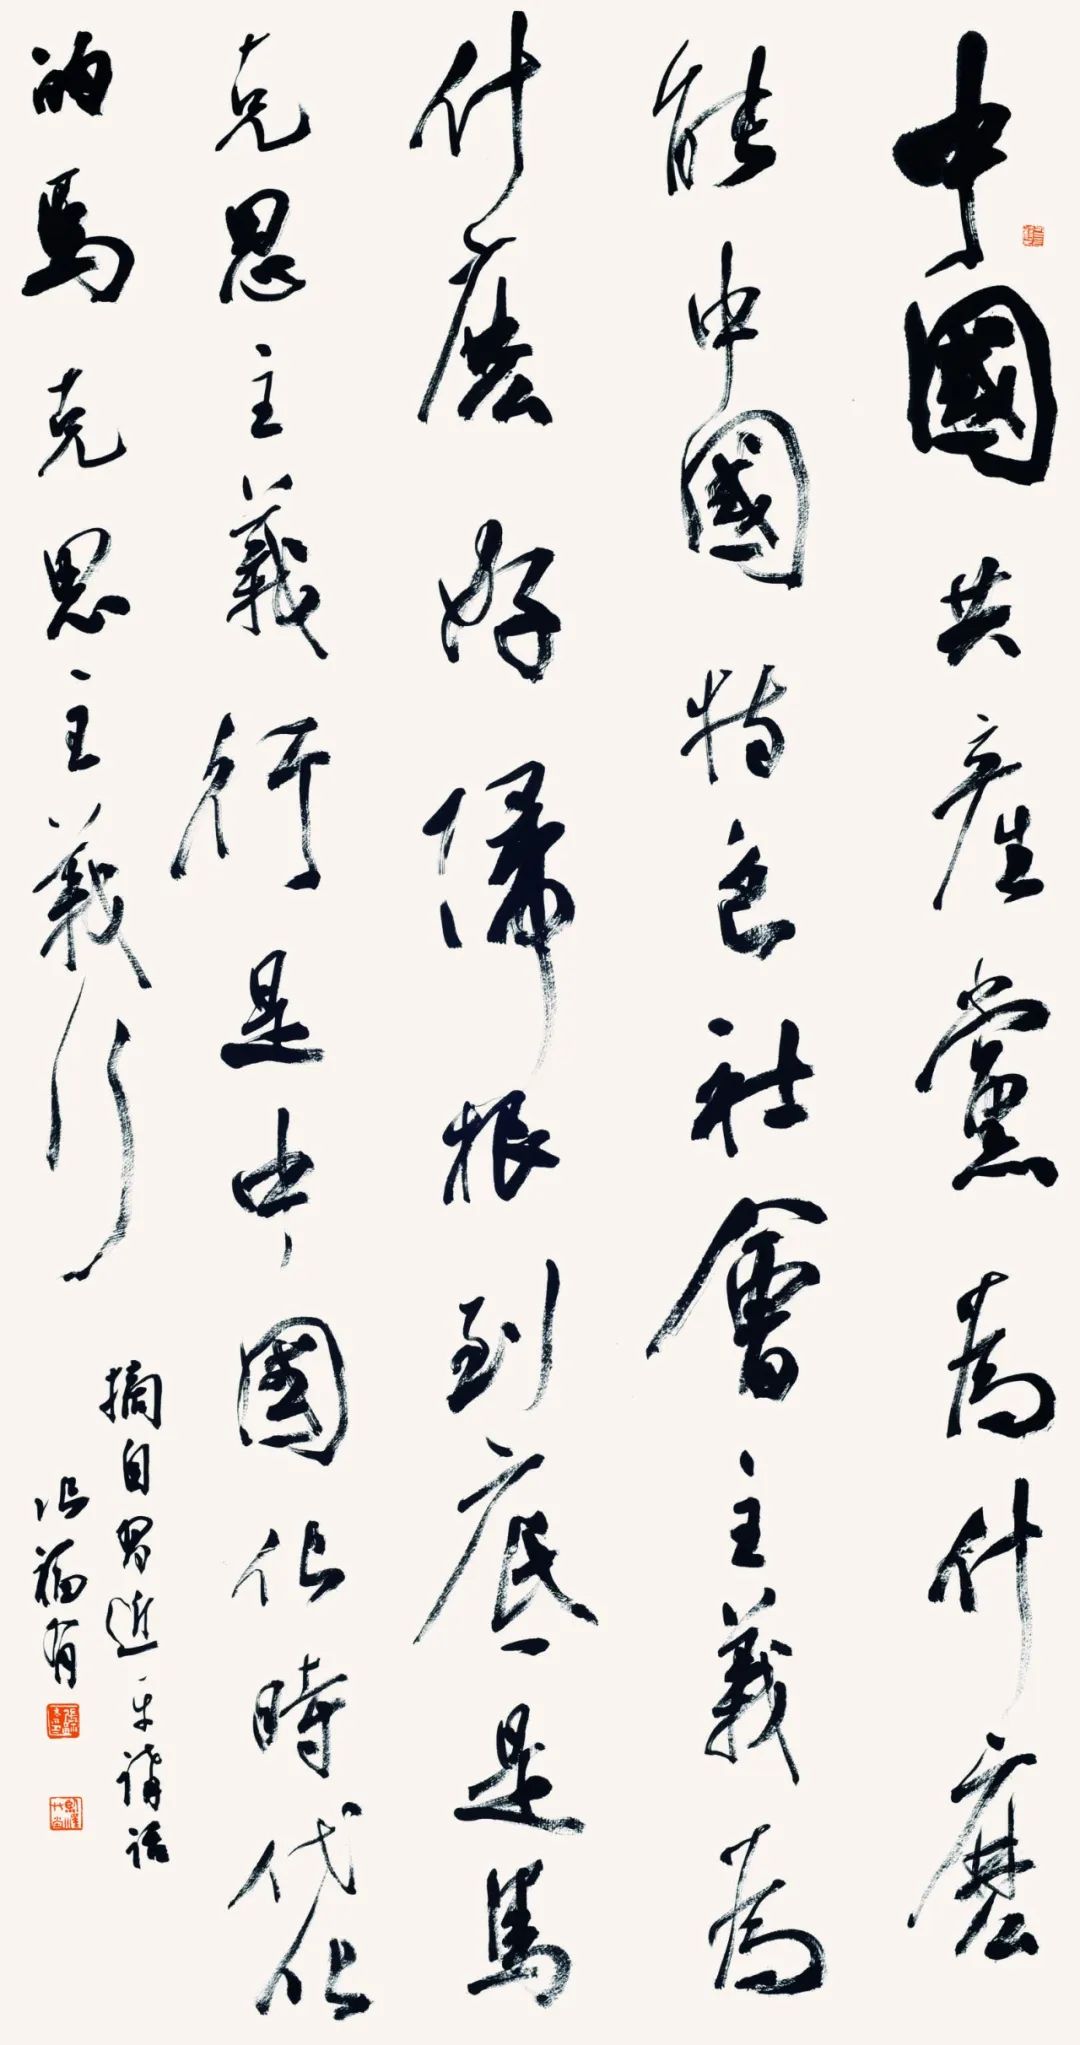 中國共產黨為什麼
能中國特色社會主義為
什麼好歸根到底是馬
克思主義行是中國化時代化
的馬克思主義行
摘自習近平講話
張福有